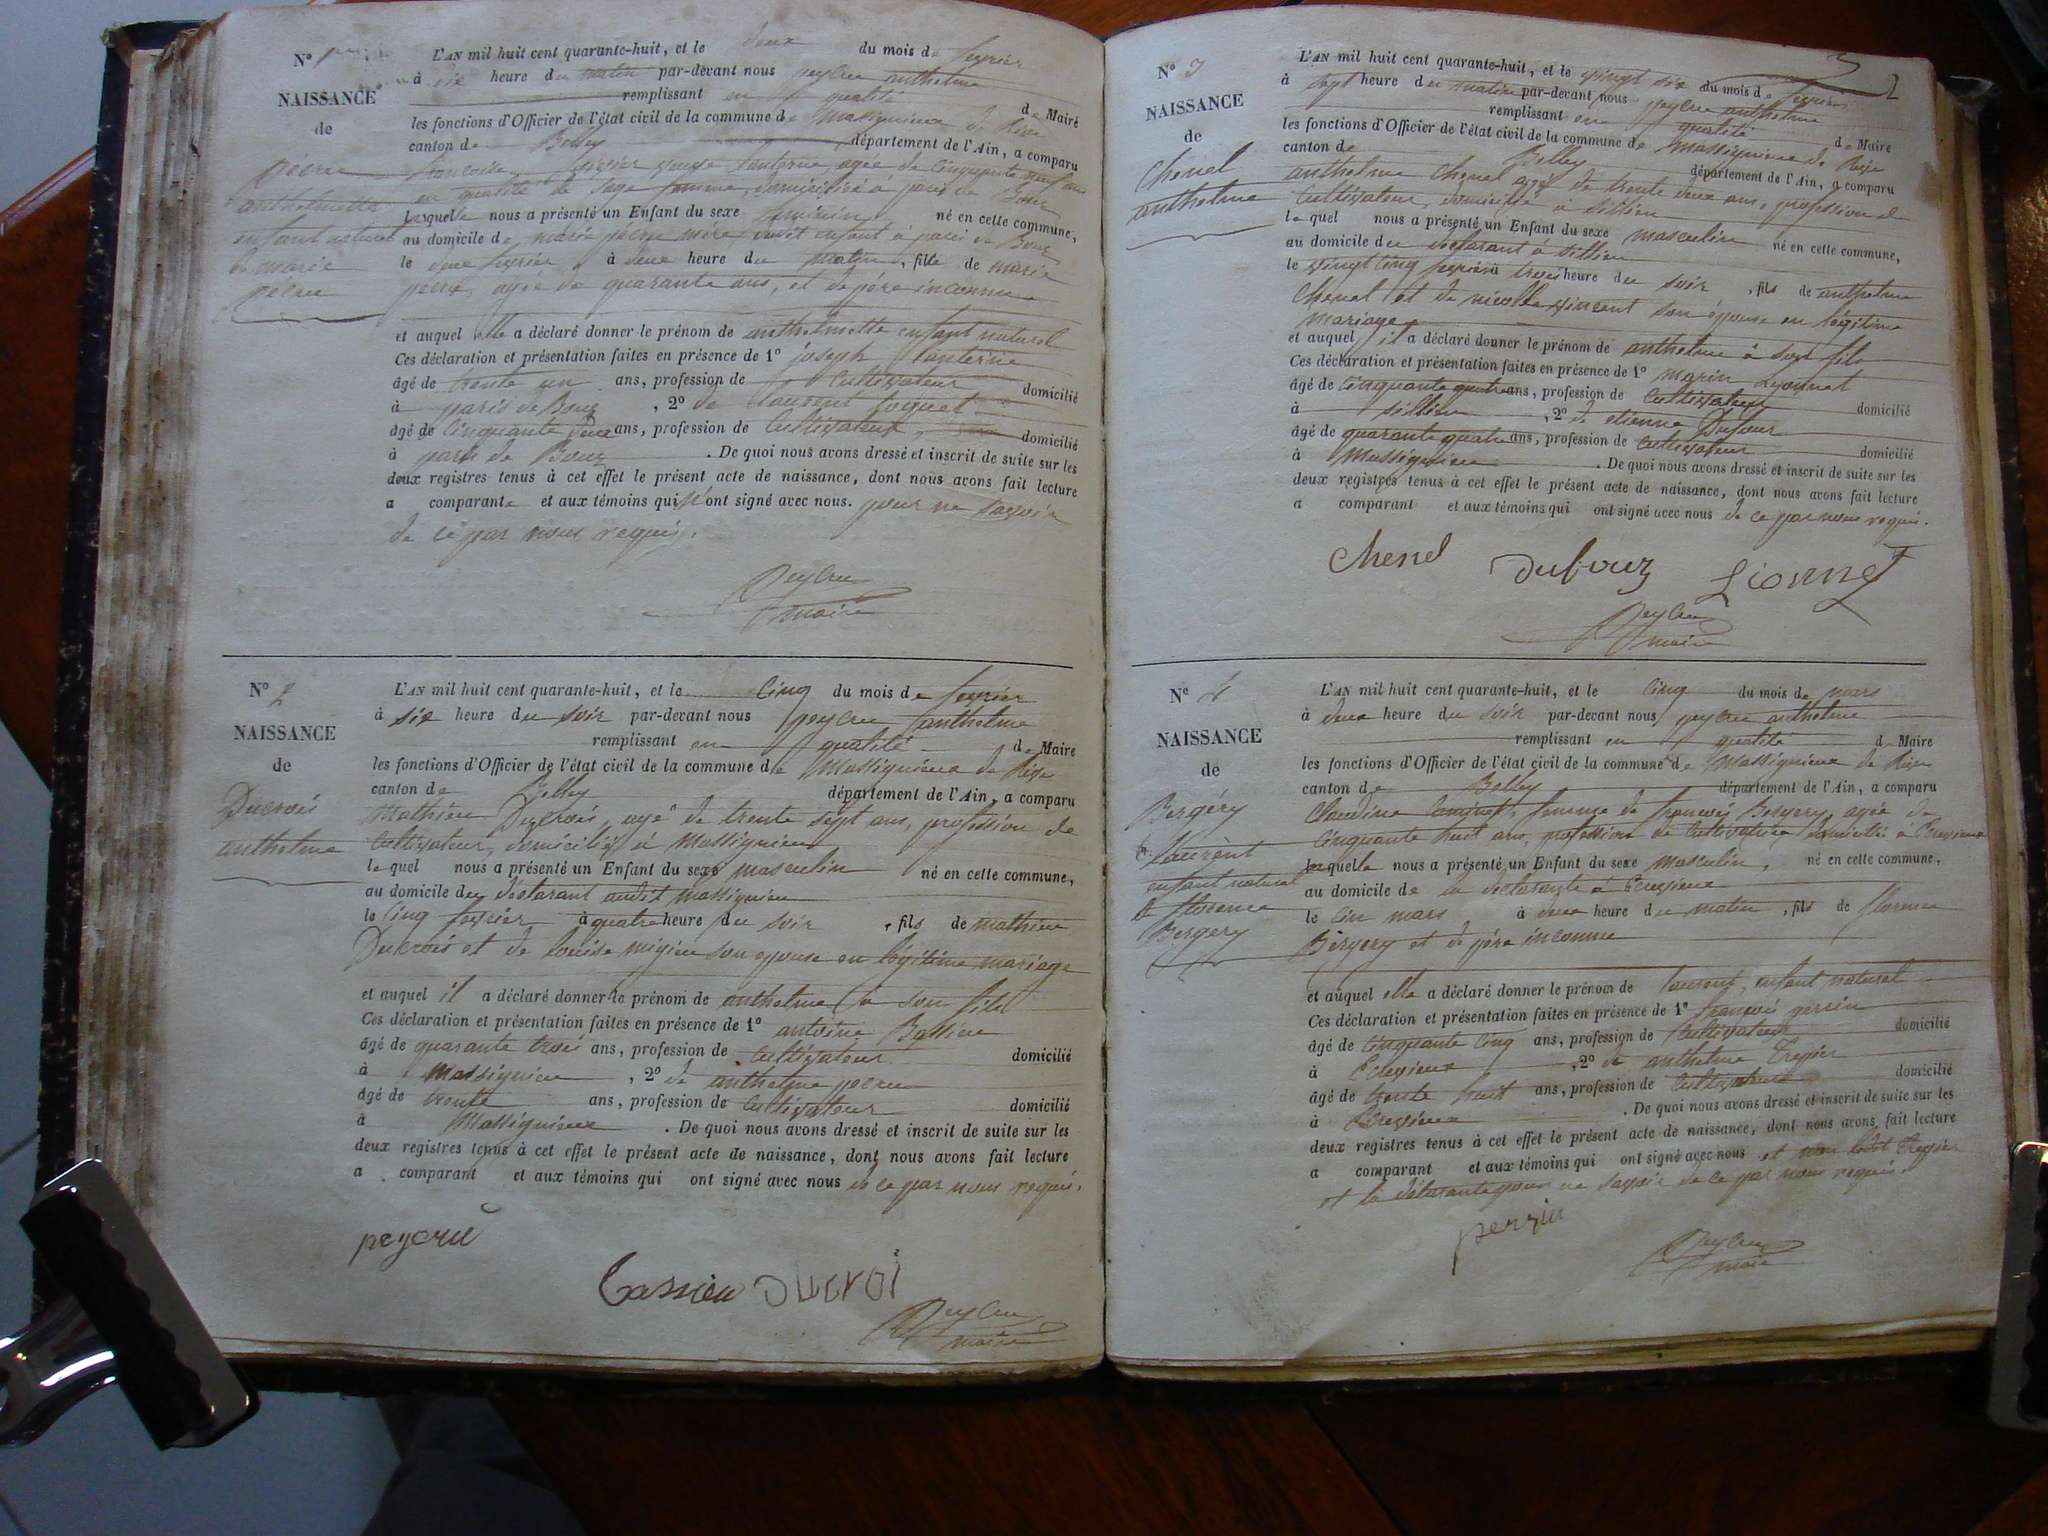 N° 1
NAISSANCE
de
anthelmette
enfant naturel
de marie
L'AN mil huit cent quarante-huit, et le deux du mois de fevrier
à six heure du matin par-devant nous peycru anthelme
remplissant en qualité de Maire
les fonctions d'Officier de l'état civil de la commune de Massignieu de Rive
canton de Belley département de l'Ain, a comparu
veuve Lanterne agée de Cinquante neuf ans
en qualité de Sage femme, domiciliée à paris de Bouz
laquelle nous a présenté un Enfant du sexe feminin né en cette commune,
au domicile de marie mère dudit enfant à paris de Bouz
le deux fevrier à deux heure du matin, fille de marie
agée de quarante ans, et de père inconnu
et auquel elle a déclaré donner le prénom de anthelmette enfant naturel
Ces déclaration et présentation faites en présence de 1° joseph Lanterne
âgé de trente un ans, profession de Cultivateur domicilié
à paris de Bouz, 2° de Laurent
âgé de Cinquante deux ans, profession de Cultivateur, domicilié
à paris de Bouz. De quoi nous avons dressé et inscrit de suite sur les
deux registres tenus à cet effet le présent acte de naissance, dont nous avons fait lecture
a comparante et aux témoins qui n'ont signé avec nous. pour ne savoir
de ce par nous requis.
Peycru
maire
N° 2
NAISSANCE
de
Ducrois
anthelme
L'AN mil huit cent quarante-huit, et le Cinq du mois de fevrier
à six heure du soir par-devant nous peycru anthelme
remplissant en qualité de Maire
les fonctions d'Officier de l'état civil de la commune de Massignieu de Rive
canton de Belley département de l'Ain, a comparu
Mathieu Ducrois, agé de trente sept ans, profession de
Cultivateur, domicilié à Massignieu
le quel nous a présenté un Enfant du sexe masculin né en cette commune,
au domicile du declarant audit massignieu
le Cinq fevrier à quatre heure du soir, fils de mathieu
Ducrois et de Louise migieu son epouse en légitime mariage
et auquel il a déclaré donner le prénom de anthelme à son fils
Ces déclaration et présentation faites en présence de 1° antoine
âgé de quarante trois ans, profession de Cultivateur domicilié
à Massignieu, 2° de anthelme peycru
âgé de trente ans, profession de Cultivateur domicilié
à Massignieu. De quoi nous avons dressé et inscrit de suite sur les
deux registres tenus à cet effet le présent acte de naissance, dont nous avons fait lecture
a comparant et aux témoins qui ont signé avec nous de ce par nous requis.
peycru
Cassieu Ducroi
Peycru
maire
2
N° 3
NAISSANCE
de
Chenel
anthelme
L'AN mil huit cent quarante-huit, et le vingt six du mois de fevrier
à sept heure du matin par-devant nous peycru anthelme
remplissant en qualité de Maire
les fonctions d'Officier de l'état civil de la commune de Massignieu de Rive
canton de Belley département de l'Ain, a comparu
anthelme Chenel agé de trente deux ans, profession de
Cultivateur, domicilié à sillieu
le quel nous a présenté un Enfant du sexe masculin né en cette commune,
au domicile du declarant à sillieu
le vingt Cinq fevrier à trois heure du soir, fils de anthelme
Chenel et de nicolle vincent son epouse en légitime
mariage
et auquel il a déclaré donner le prénom de anthelme à son fils
Ces déclaration et présentation faites en présence de 1° marin Lyonnet
âgé de Cinquante quatre ans, profession de Cultivateur domicilié
à sillieu, 2° de etienne Dufour
âgé de quarante quatre ans, profession de Cultivateur domicilié
à Massignieu. De quoi nous avons dressé et inscrit de suite sur les
deux registres tenus à cet effet le présent acte de naissance, dont nous avons fait lecture
a comparant et aux témoins qui ont signé avec nous de ce par nous requis.
Chenel Dufour Lionnet
Peycru
maire
N° 4
NAISSANCE
de
Bergéry
Laurent
enfant naturel
de florence
Bergery
L'AN mil huit cent quarante-huit, et le Cinq du mois de mars
à deux heure du soir par-devant nous peycru anthelme
remplissant en qualité de Maire
les fonctions d'Officier de l'état civil de la commune de Massignieu de Rive
canton de Belley département de l'Ain, a comparu
Claudine femme de françois Bergery agée de
Cinquante huit ans, profession de Cultivatrice domicilié à Ecrivieux
laquelle nous a présenté un Enfant du sexe masculin, né en cette commune,
au domicile de la declarante à Ecrivieux
le Cin mars à deux heure du matin, fils de florence
Bergery et de père inconnu
et auquel elle a déclaré donner le prénom de Laurent, enfant naturel
Ces déclaration et présentation faites en présence de 1° françois perrin
âgé de Cinquante Cinq ans, profession de Cultivateur domicilié
à Ecrivieux, 2° de anthelme
âgé de trente huit ans, profession de Cultivateur domicilié
à Ecrivieux. De quoi nous avons dressé et inscrit de suite sur les
deux registres tenus à cet effet le présent acte de naissance, dont nous avons fait lecture
a comparant et aux témoins qui ont signé avec nous et non ledit
et la déclarante pour ne savoir de ce par nous requis.
perrin
Peycru
maire